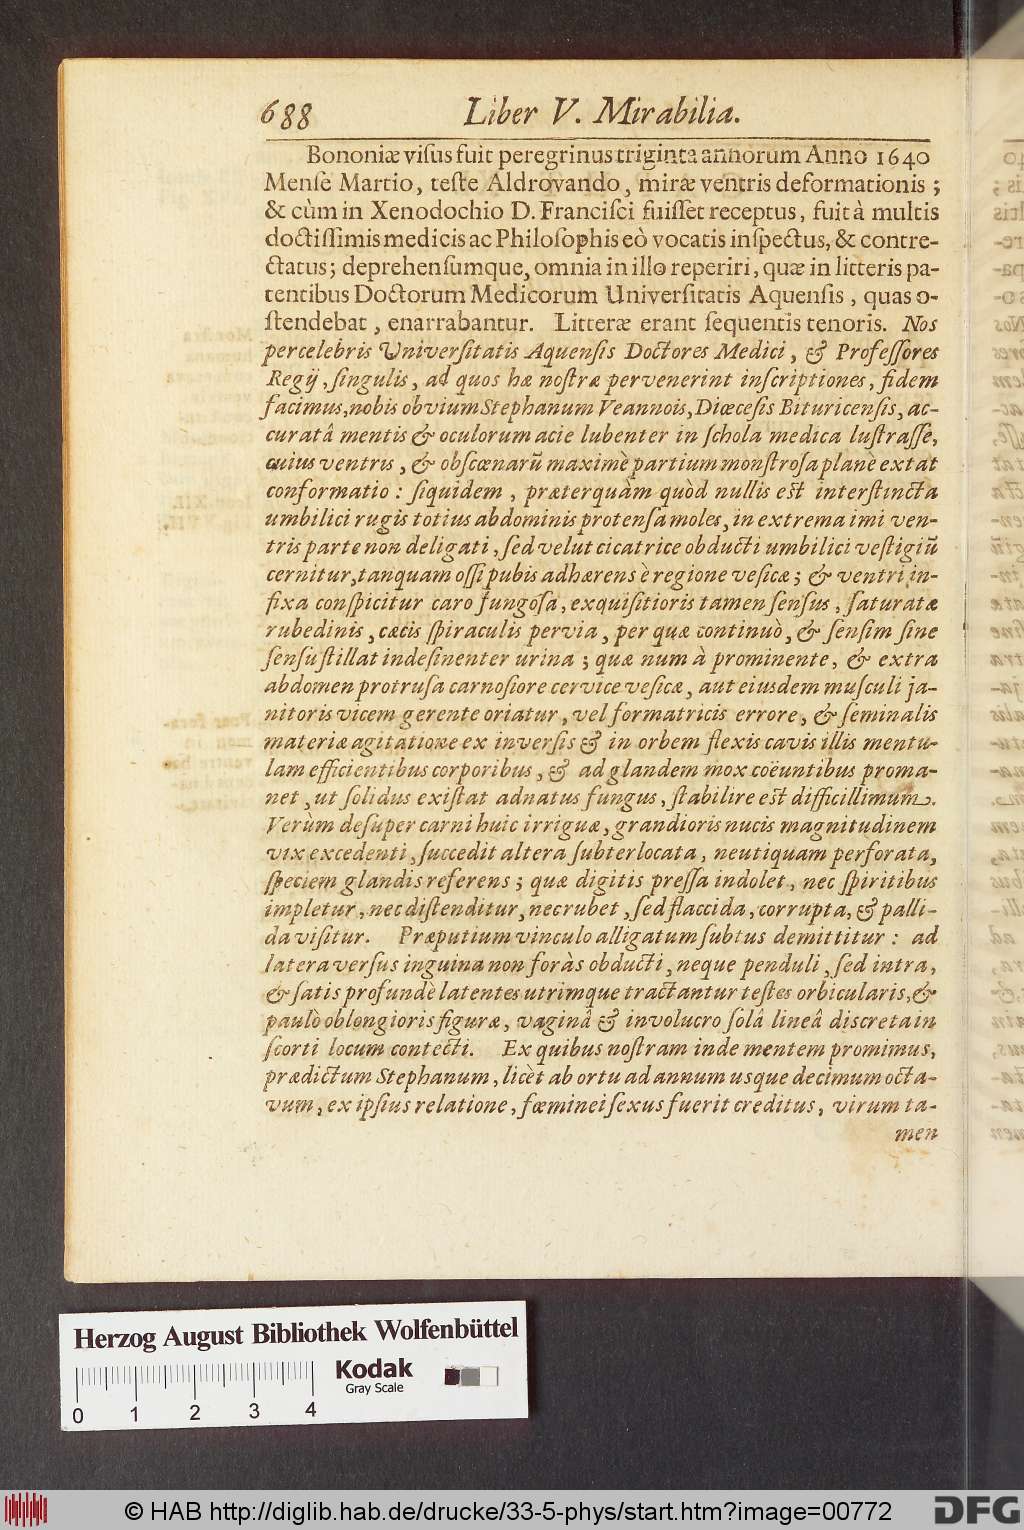 688 Liber V. Mirabilia.
Bononiæ visus fuit peregrinus triginta annorum Anno 1640
Mense Martio, teste Aldrovando, miræ ventris deformationis;
& cùm in Xenodochio D. Francisci fuisset receptus, fuit à multis
doctissimis medicis ac Philosophis eò vocatis inspectus, & contre-
ctatus; deprehensumque, omnia in illo reperiri, quæ in litteris pa-
tentibus Doctorum Medicorum Universitatis Aquensis, quas o-
stendebat, enarrabantur. Litteræ erant sequentis tenoris. Nos
percelebris Universitatis Aquensis Doctores Medici, & Professores
Regij, singulis, ad quos hæ nostræ pervenerint inscriptiones, fidem
facimus, nobis obvium Stephanum Veannois, Diœcesis Bituricensis, ac-
curatâ mentis & oculorum acie lubenter in schola medica lustrasse,
cuius ventris, & obscœnarũ maximè partium monstrosa planè extat
conformatio: siquidem, præterquàm quòd nullis est interstincta
umbilici rugis totius abdominis protensa moles, in extrema imi ven-
tris parte non deligati, sed velut cicatrice obducti umbilici vestigiũ
cernitur, tanquam ossi pubis adhærens è regione vesicæ; & ventri in-
fixa conspicitur caro fungosa, exquisitioris tamen sensus, saturatæ
rubedinis, cæcis spiraculis pervia, per quæ continuò, & sensim sine
sensu stillat indesinenter urina; quæ num à prominente, & extra
abdomen protrusa carnosiore cervice vesicæ, aut eiusdem musculi ja-
nitoris vicem gerente oriatur, vel formatricis errore, & seminalis
materiæ agitatione ex inversis & in orbem flexis cavis illis mentu-
lam efficientibus corporibus, & ad glandem mox coëuntibus proma-
net, ut solidus existat adnatus fungus, stabilire est difficillimum.
Verùm desuper carni huic irriguæ, grandioris nucis magnitudinem
vix excedenti, succedit altera subter locata, neutiquam perforata,
speciem glandis referens; quæ digitis pressa indolet, nec spiritibus
impletur, nec distenditur, nec rubet, sed flaccida, corrupta, & palli-
da visitur. Præputium vinculo alligatum subtus demittitur: ad
latera versus inguina non foràs obducti, neque penduli, sed intra,
& satis profundè latentes utrimque tractantur testes orbicularis, &
paulò oblongioris figuræ, vaginâ & involucro solâ lineâ discreta in
scorti locum contecti. Ex quibus nostram inde mentem promimus,
prædictum Stephanum, licèt ab ortu ad annum usque decimum octa-
vum, ex ipsius relatione, fœminei sexus fuerit creditus, virum ta-
men
Herzog August Bibliothek Wolfenbüttel
Kodak
Gray Scale
0 1 2 3 4
© HAB http://diglib.hab.de/drucke/33-5-phys/start.htm?image=00772
DFG